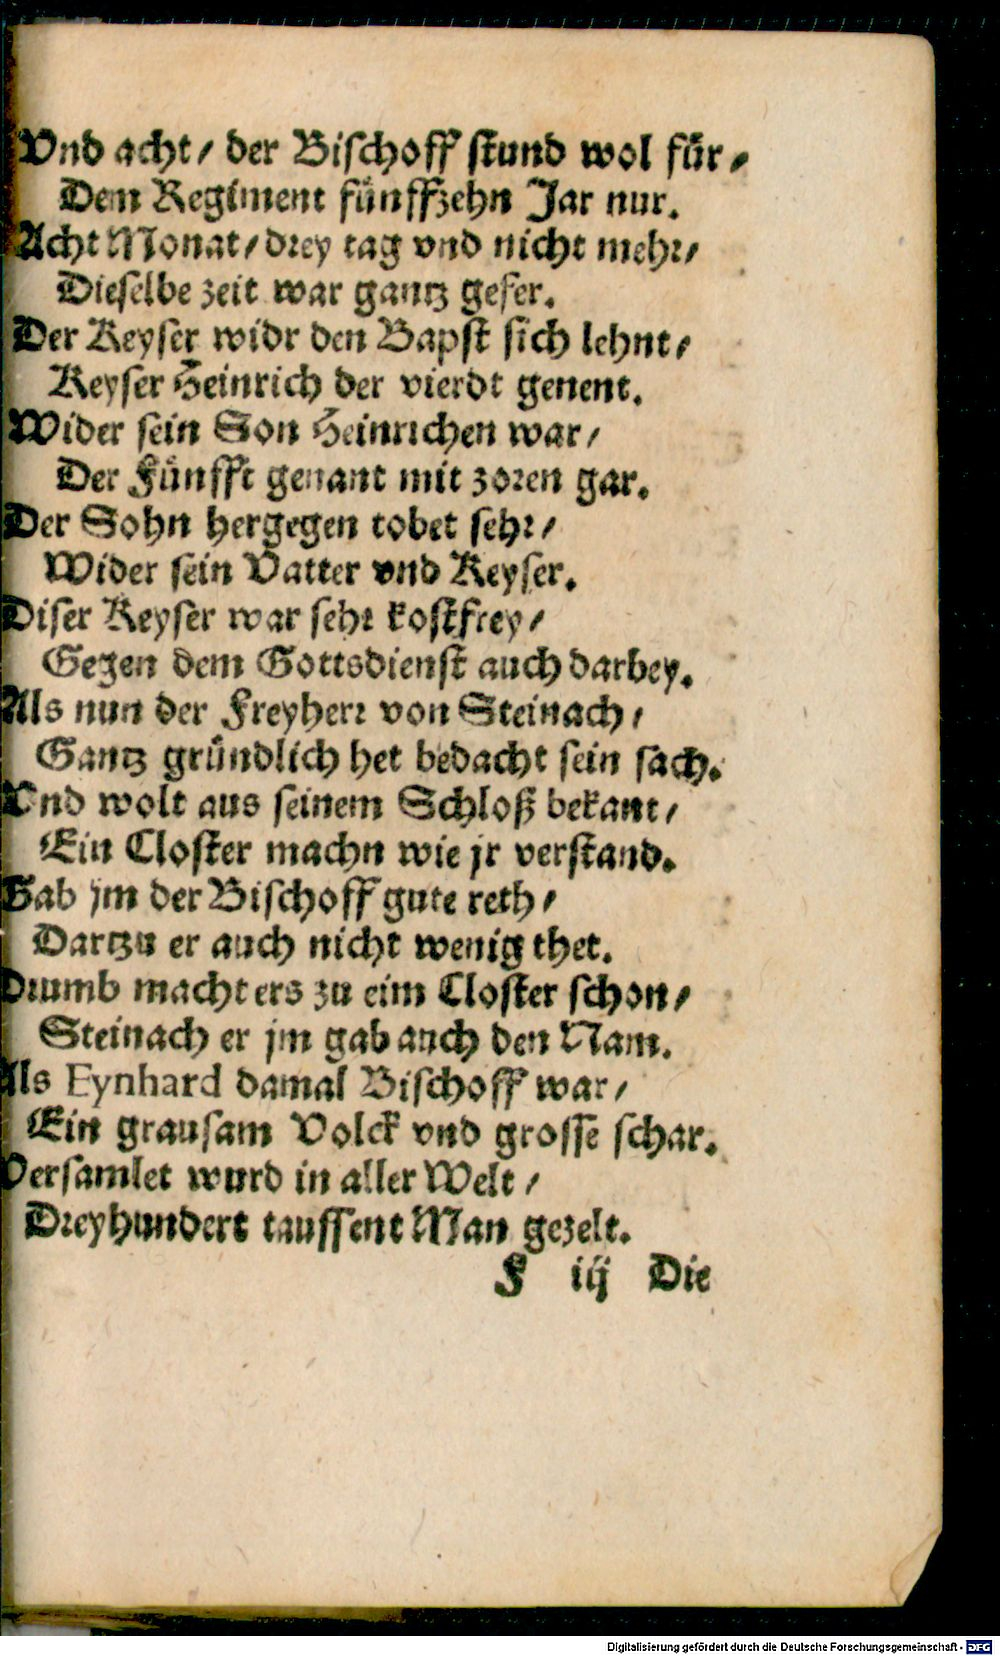 Vnd acht/ der Bischoff stund wol für/
Dem Regiment fünffzehn Jar nur.
Acht Monat/ drey tag vnd nicht mehr/
Dieselbe zeit war gantz gefer.
Der Keyser widr den Bapst sich lehnt/
Keyser Heinrich der vierdt genent.
Wider sein Son Heinrichen war/
Der Fünfft genant mit zoren gar.
Der Sohn hergegen tobet sehr/
Wider sein Vatter vnd Keyser.
Diser Keyser war sehr kostfrey/
Gegen dem Gottsdienst auch darbey.
Als nun der Freyherr von Steinach/
Gantz gründlich het bedacht sein sach.
Vnd wolt aus seinem Schloß bekant/
Ein Closter machn wie jr verstand.
Gab jm der Bischoff gute reth/
Dartzu er auch nicht wenig thet.
Drumb macht ers zu eim Closter schon/
Steinach er jm gab auch den Nam.
Als Eynhard damal Bischoff war/
Ein grausam Volck vnd grosse schar.
Versamlet wurd in aller Welt/
Dreyhundert taussent Man gezelt.
F iij Die
Digitalisierung gefördert durch die Deutsche Forschungsgemeinschaft - DFG